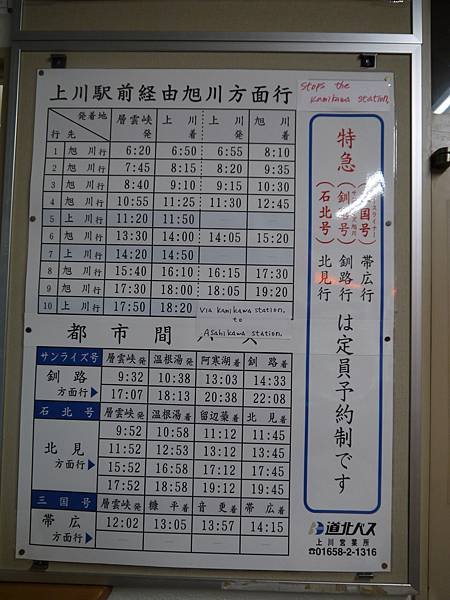 上川駅前経由旭川方面行
Stops the
Kamikawa station.
行先 発着地 層雲峡発 上川着 上川発 旭川着
1 旭川行 6:20 6:50 6:55 8:10
2 旭川行 7:45 8:15 8:20 9:35
3 旭川行 8:40 9:10 9:15 10:30
4 旭川行 10:55 11:25 11:30 12:45
5 上川行 11:20 11:50
6 旭川行 13:30 14:00 14:05 15:20
7 上川行 14:20 14:50
8 旭川行 15:40 16:10 16:15 17:30
9 旭川行 17:30 18:00 18:05 19:20
10 上川行 17:50 18:20
via kamikawa station.
to
Asahikawa station.
都市間
サンライズ号 層雲峡発 温根湯着 阿寒湖着 釧路着
釧路方面行 9:32 10:38 13:03 14:33
17:07 18:13 20:38 22:08
石北号 層雲峡発 温根湯着 留辺蘂着 北見着
北見方面行 9:52 10:58 11:12 11:45
11:52 12:53 13:12 13:45
15:52 16:58 17:12 17:45
17:52 18:58 19:12 19:45
三国号 層雲峡発 糠平着 音更着 帯広着
帯広方面行 12:02 13:05 13:57 14:15
特急
(国号) 帯広行
(釧号) 釧路行
(石北号) 北見行
は定員予約制です
道北バス
上川営業所
☎01658-2-1316